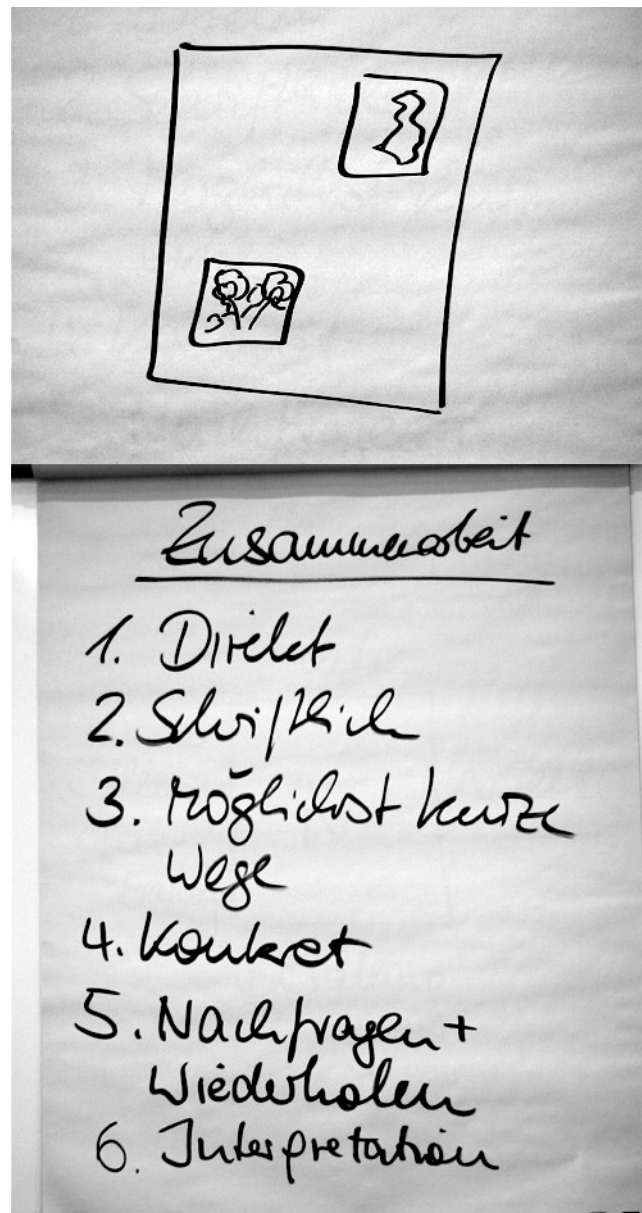 Zusammenarbeit
1. Direkt
2. Schriftlich
3. Möglichst kurze
Wege
4. Konkret
5. Nachfragen +
Wiederholen
6. Interpretation